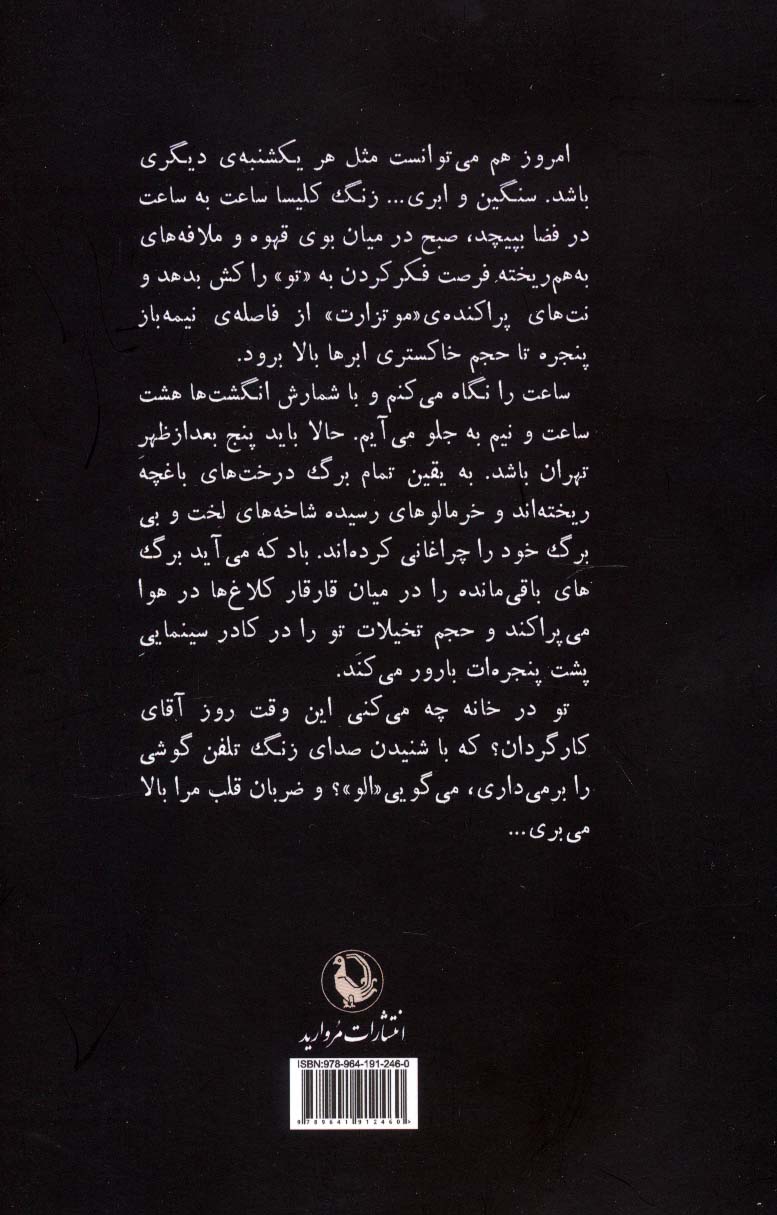 امروز هم می‌توانست مثل هر یکشنبه‌ی دیگری
باشد. سنگین و ابری... زنگ کلیسا ساعت به ساعت
در فضا بپیچد، صبح در میان بوی قهوه و ملافه‌های
به‌هم‌ریخته فرصت فکرکردن به «تو» را کش بدهد و
نت‌های پراکنده‌ی «موتزارت» از فاصله‌ی نیمه‌باز
پنجره تا حجم خاکستری ابرها بالا برود.
ساعت را نگاه می‌کنم و با شمارش انگشت‌ها هشت
ساعت و نیم به جلو می‌آیم. حالا باید پنج بعدازظهرِ
تهران باشد. به یقین تمام برگ درخت‌های باغچه
ریخته‌اند و خرمالوهای رسیده شاخه‌های لخت و بی
برگ خود را چراغانی کرده‌اند. باد که می‌آید برگ
های باقی‌مانده را در میان قارقار کلاغ‌ها در هوا
می‌پراکند و حجم تخیلات تو را در کادر سینماییِ
پشت پنجره‌ات بارور می‌کَند.
تو در خانه چه می‌کنی این وقت روز آقای
کارگردان؟ که با شنیدن صدای زنگ تلفن گوشی
را برمی‌داری، می‌گویی «الو»؟ و ضربان قلب مرا بالا
می‌بری...
انتشارات مُروارید
ISBN:978-964-191-246-0
9 789641 912460 >